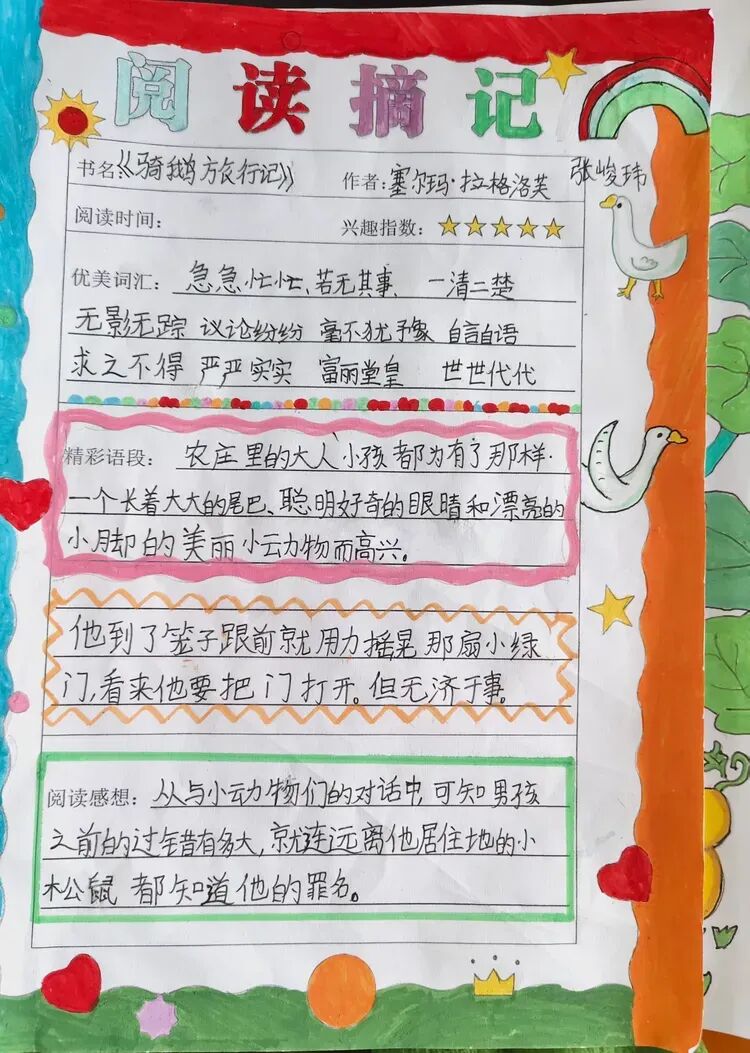 阅读摘记
书名:《骑鹅旅行记》 作者:塞尔玛·拉格洛芙 张峻玮
阅读时间: 兴趣指数:
优美词汇: 急急忙忙、若无其事、 一清二楚
无影无踪 议论纷纷 毫不犹豫 自言自语
求之不得 严严实实 富丽堂皇 世世代代
精彩语段: 农庄里的大人小孩都为有了那样
一个长着大大的尾巴、聪明好奇的眼睛和漂亮的
小脚的美丽小动物而高兴。
他到了笼子跟前就用力摇晃那扇小绿
门,看来他要把门打开。但无济于事。
阅读感想: 从与小动物们的对话中,可知男孩
之前的过错有多大,就连远离他居住地的小
松鼠都知道他的罪名。